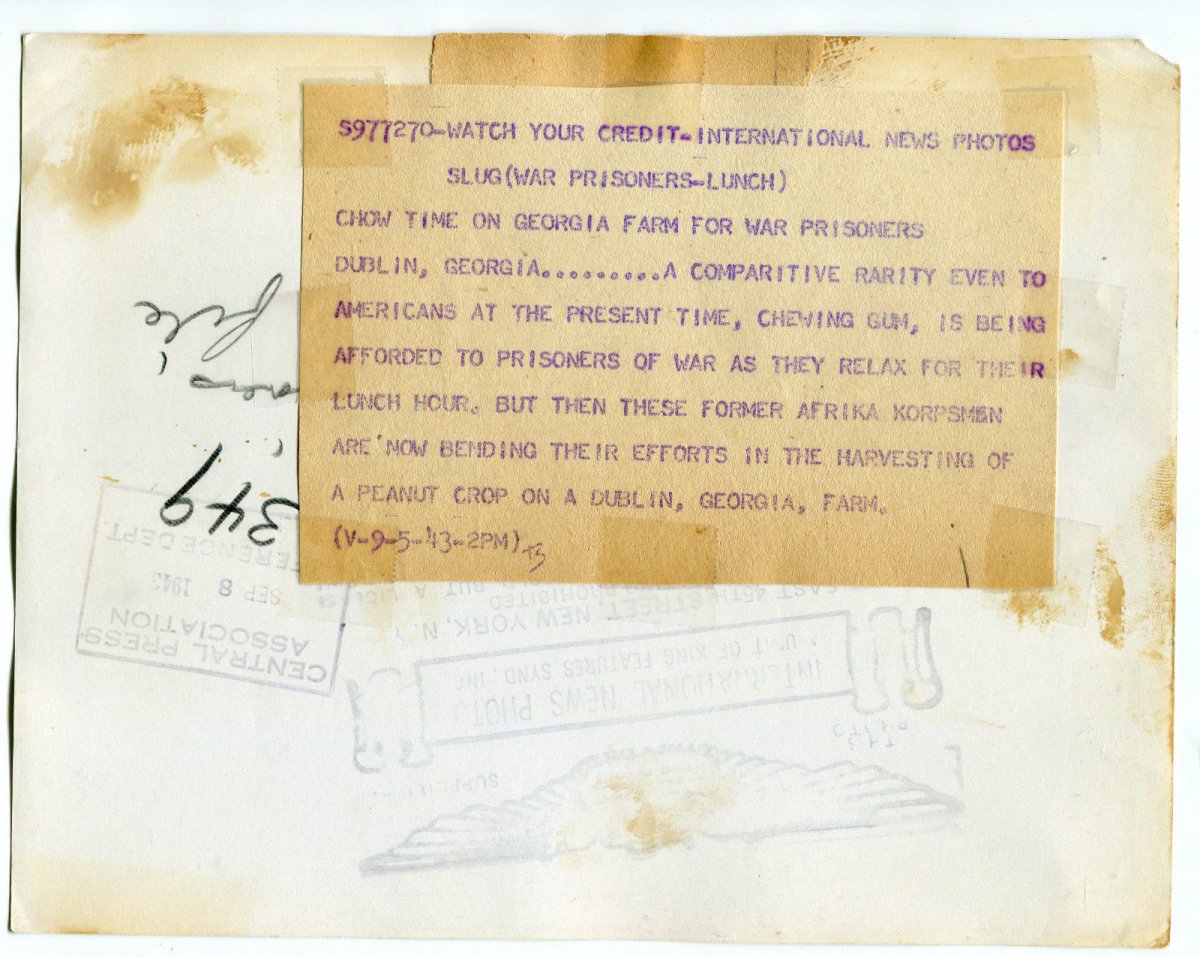 S977270-WATCH YOUR CREDIT-INTERNATIONAL NEWS PHOTOS
SLUG(WAR PRISONERS-LUNCH)
CHOW TIME ON GEORGIA FARM FOR WAR PRISONERS
DUBLIN, GEORGIA.........A COMPARITIVE RARITY EVEN TO
AMERICANS AT THE PRESENT TIME, CHEWING GUM, IS BEING
AFFORDED TO PRISONERS OF WAR AS THEY RELAX FOR THEIR
LUNCH HOUR. BUT THEN THESE FORMER AFRIKA KORPSMEN
ARE NOW BENDING THEIR EFFORTS IN THE HARVESTING OF
A PEANUT CROP ON A DUBLIN, GEORGIA, FARM.
(V-9-5-43-2PM)
file
349
CENTRAL PRESS
ASSOCIATION
SEP 8 1943
DEPT.
EAST 45TH STREET, NEW YORK, N.Y.
INTERNATIONAL NEWS PHOTO
UNIT OF KING FEATURES SYND. INC
PROHIBITED